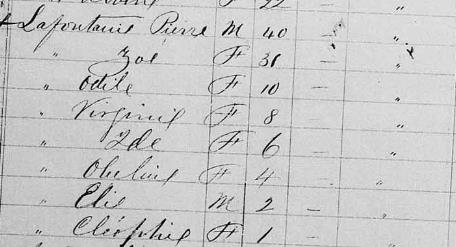 F 22 "
+ Lafontaine Pierre M 40 — "
" Zoé F 31 — "
" Odile F 10 — "
" Virginie F 8 "
" Ide F 6 "
" F 4 "
" Elie M 2 — "
" Cléophie F 1 — "